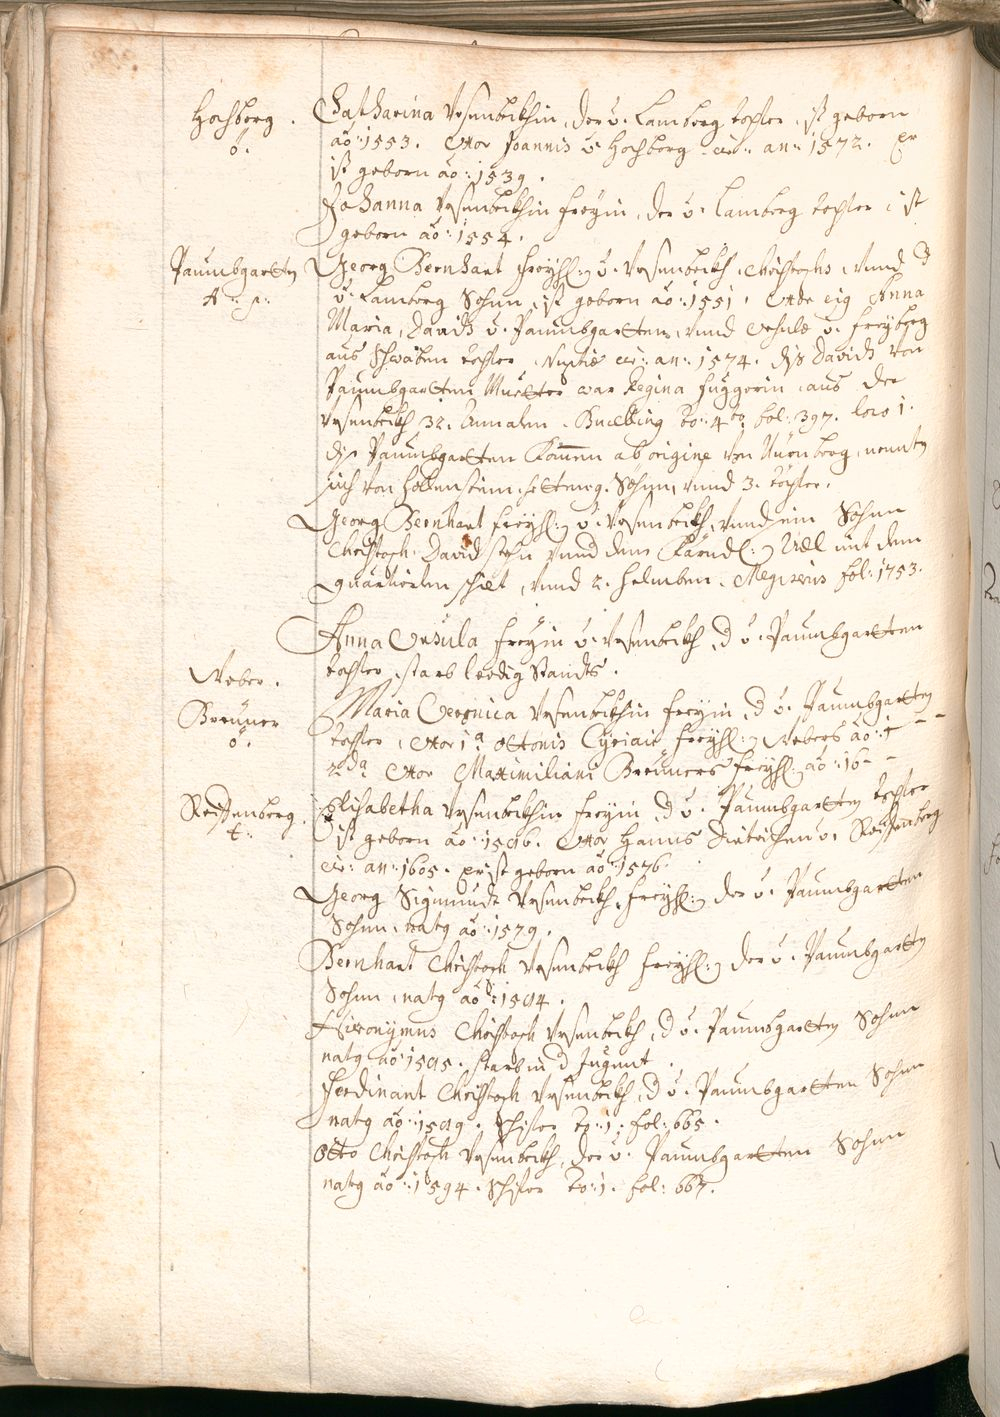 Hochberg .
ö.
Catharina Ursenbeckhin, der v. Lamberg tochter, ist geborn
aō: 1553. Uxor Joannis v. Hochberg cir: an: 1572. Er
ist geborn aō: 1539.
Johanna Ursenbeckhin freyin, der v. Lamberg tochter, ist
geborn aō: 1554.
Paumbgartten
Georg Bernhart freyh: v. Ursenbeckh, Christophs, vnnd d
v. Lamberg Sohnn, ist geborn aō: 1551. Anna
Maria, Davidts v. Paumbgartten, vnnd Ursulæ v. freyberg
aus Schwaben tochter. Nuptiæ cir: an: 1574. diß Davidts von
Paumbgartten Muetter war Regina fuggerin, aus der
Ursenbeckh 32. Annaten. Bucelling to: 4to fol: 397. loco 1.
die Paumbgartten kommen ab origine von Nürnberg, nennten
sich von Hollenstein, Söhnn, vnnd 3. töchter.
Georg Bernhart freyh: v. Ursenbeckh, vnnd sein Sohnn
Christoph David stehn vnnd dem Kärndl: Adl mit dem
quartierten schilt, vnnd 2. helmben. Megiserus fol: 1753.
Anna Ursula freyin v. Ursenbeckh, d v. Paumbgartten
tochter, starb leedig Standts.
Weber.
Breüner
ö.
Maria Veronica Ursenbeckhin freyin, d v. Paumbgartten
tochter, Uxor 1a Ottonis Cyriaic freyh: Webers aō: 1 - -
2da Uxor Maximiliani Breüners freyh: aō: 16 - -
Reiffenberg
t:
Elisabetha Ursenbeckhin freyin, d v. Paumbgartten tochter
ist geborn aō: 1586. Uxor Hanns Dietrichen v. Reiffenberg
cir: an: 1605. Er ist geborn aō: 1576.
Georg Sigmundt Ursenbeckh, freyh: der v. Paumbgartten
Sohnn, natg aō: 1579.
Bernhart Christoph Ursenbeckh freyh: der v. Paumbgartten
Sohnn, natg aō: 1584.
Hieronymus Christoph Ursenbeckh, d v. Paumbgartten Sohnn
natg aō: 1585. starb in d Jugent.
Ferdinant Christoph Ursenbeckh, d v. Paumbgartten Sohnn
natg aō: 1589. to: 1. fol: 665.
Otto Christoph Ursenbeckh, der v. Paumbgartten Sohnn
natg aō: 1594. to: 1. fol: 667.